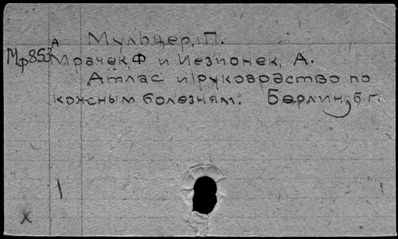 А Мульцер, П.
Мф853 Мрачек, Ф и Иезионек, А.
Атлас и руководство по
кожным болезням. Берлин, б г.
X